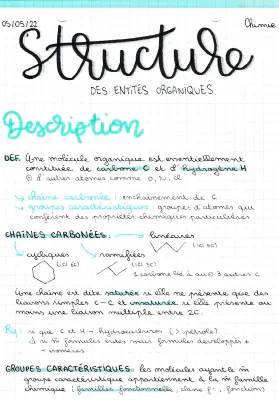 05/05/22
Chimie
Structure
DES ENTITÉS ORGANIQUES
Description
DEF. Une molécule organique est essentiellement
constituée de carbone C et d'hydrogène H
⊕ d'autres atomes comme O, N, Cl
↳ chaîne carbonée : enchaînement de C
↳ groupes caractéristiques : groupes d'atomes qui
confèrent des propriétés chimiques particulières
CHAÎNES CARBONÉES :
linéaires
(ici 5C)
cycliques
(ici 6C)
ramifiées
(ici 5C)
1 carbone lié à au ⊕ 3 autres C
Une chaîne est dite saturée si elle ne présente que des
liaisons simples C-C et insaturée si elle présente au
moins une liaison multiple entre 2C.
Rq : si que C et H → hydrocarbures (> pétrole)
si m̂ formules brutes mais formules développées ≠
→ isomères
GROUPES CARACTÉRISTIQUES : les molécules ayant le m̂
groupe caractéristique appartiennent à la m̂ famille
chimique (familles fonctionnelles, classe f°, fonction)